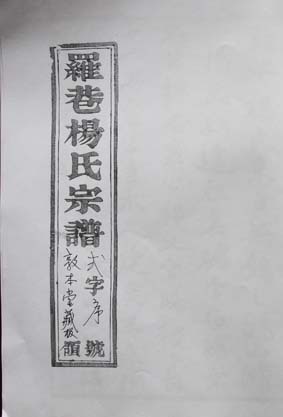 羅巷楊氏宗譜
弍字序號
敦本堂藏板領